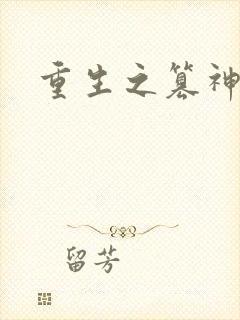 重生之篡神
留芳